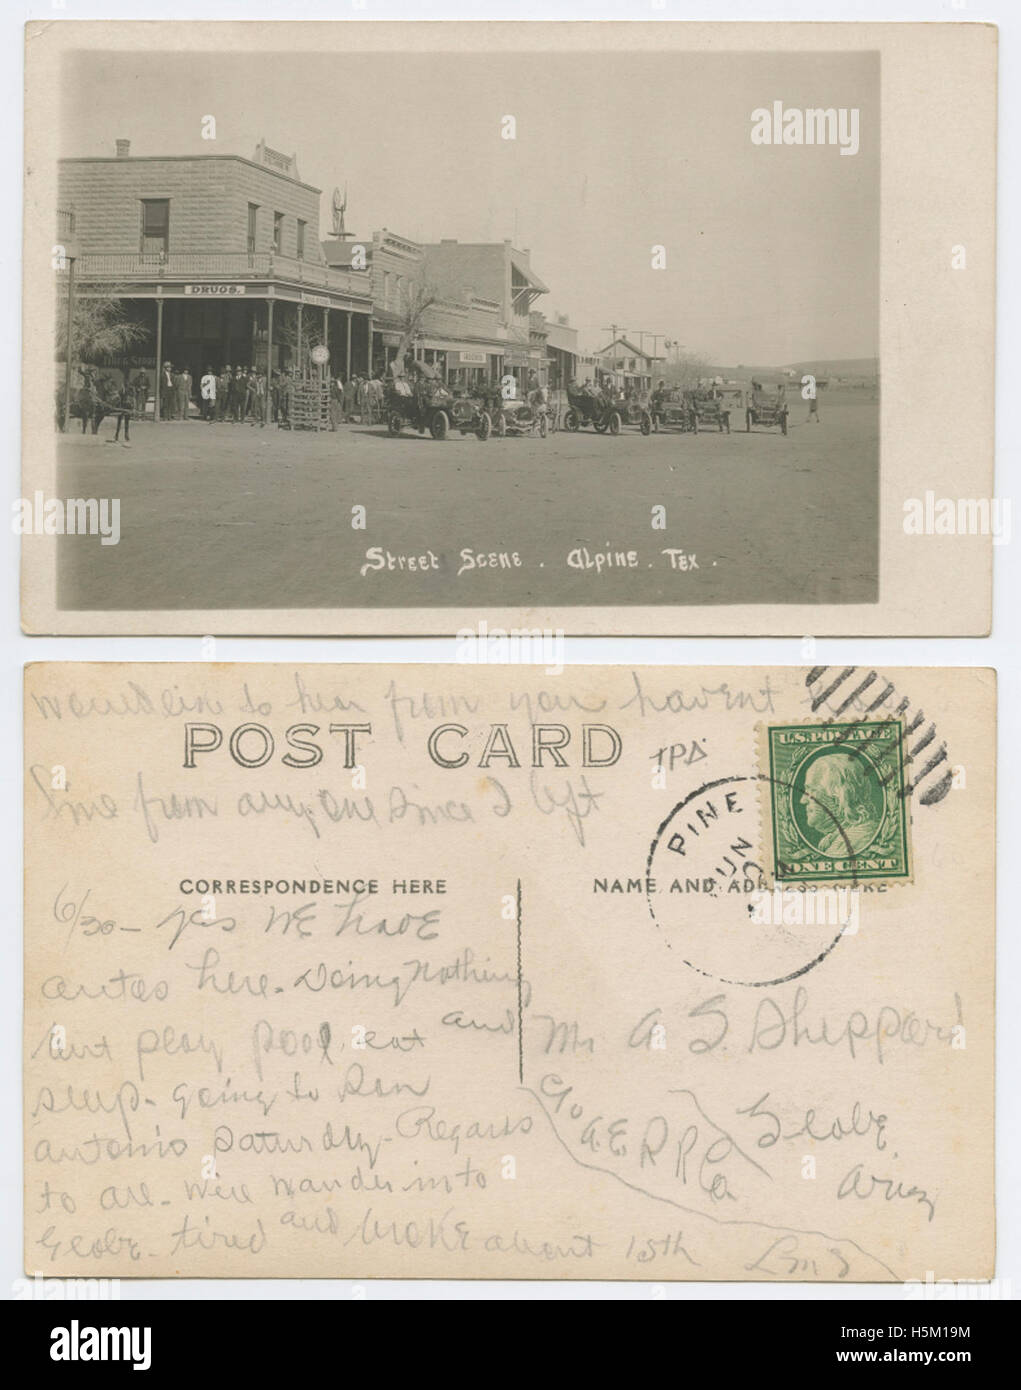 DRUGS.
DRUG STORE
Street Scene. Alpine. Tex.
would like to hear from you haven't
POST CARD
line from any one since I left
U.S. POSTAGE
ONE CENT
PINE
JUN
CORRESPONDENCE HERE
NAME AND ADDRESS HERE
6/30 - yes we have
autos here. Doing nothing
but play pool, eat and
sleep. going to San
Antonio Saturday. Regards
to all. will wander into
Globe. tired and broke about 15th
Mr A. S. Sheppard
c/o A.E.R.R. Co
Globe,
Ariz
alamy
a
www.alamy.com
H5M19M